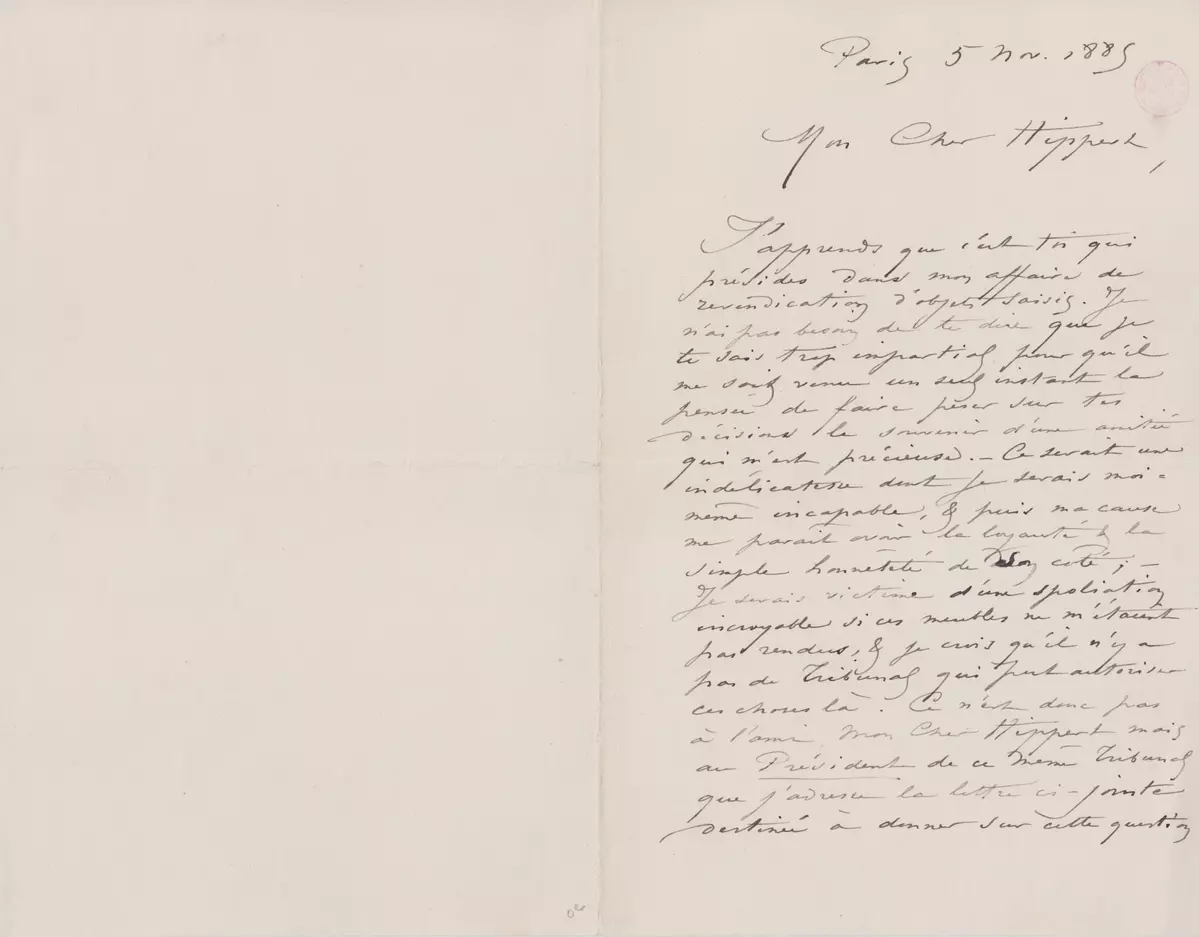 Paris 5 Nov. 1885
Mon Cher Hippert,
J'apprends que c'est toi qui
présides dans mon affaire de
revendication d'objets saisis. Je
n'ai pas besoin de te dire que je
te sais trop impartial pour qu'il
me soit venu un seul instant la
pensée de faire peser sur tes
décisions le souvenir d'une amitié
qui m'est précieuse. – Ce serait une
indélicatesse dont je serais moi=
même incapable, & puis ma cause
me parait avoir la loyauté & la
simple honnêteté de son coté; –
Je serais victime d'une spoliation
incroyable si ces meubles ne m'étaient
pas rendus, & je crois qu'il n'y a
pas de Tribunal qui peut autoriser
ces choses là. Ce n'est donc pas
à l'ami, mon Cher Hippert mais
au Président de ce même Tribunal
que j'adresse la lettre ci-jointe
destinée à donner sur cette question